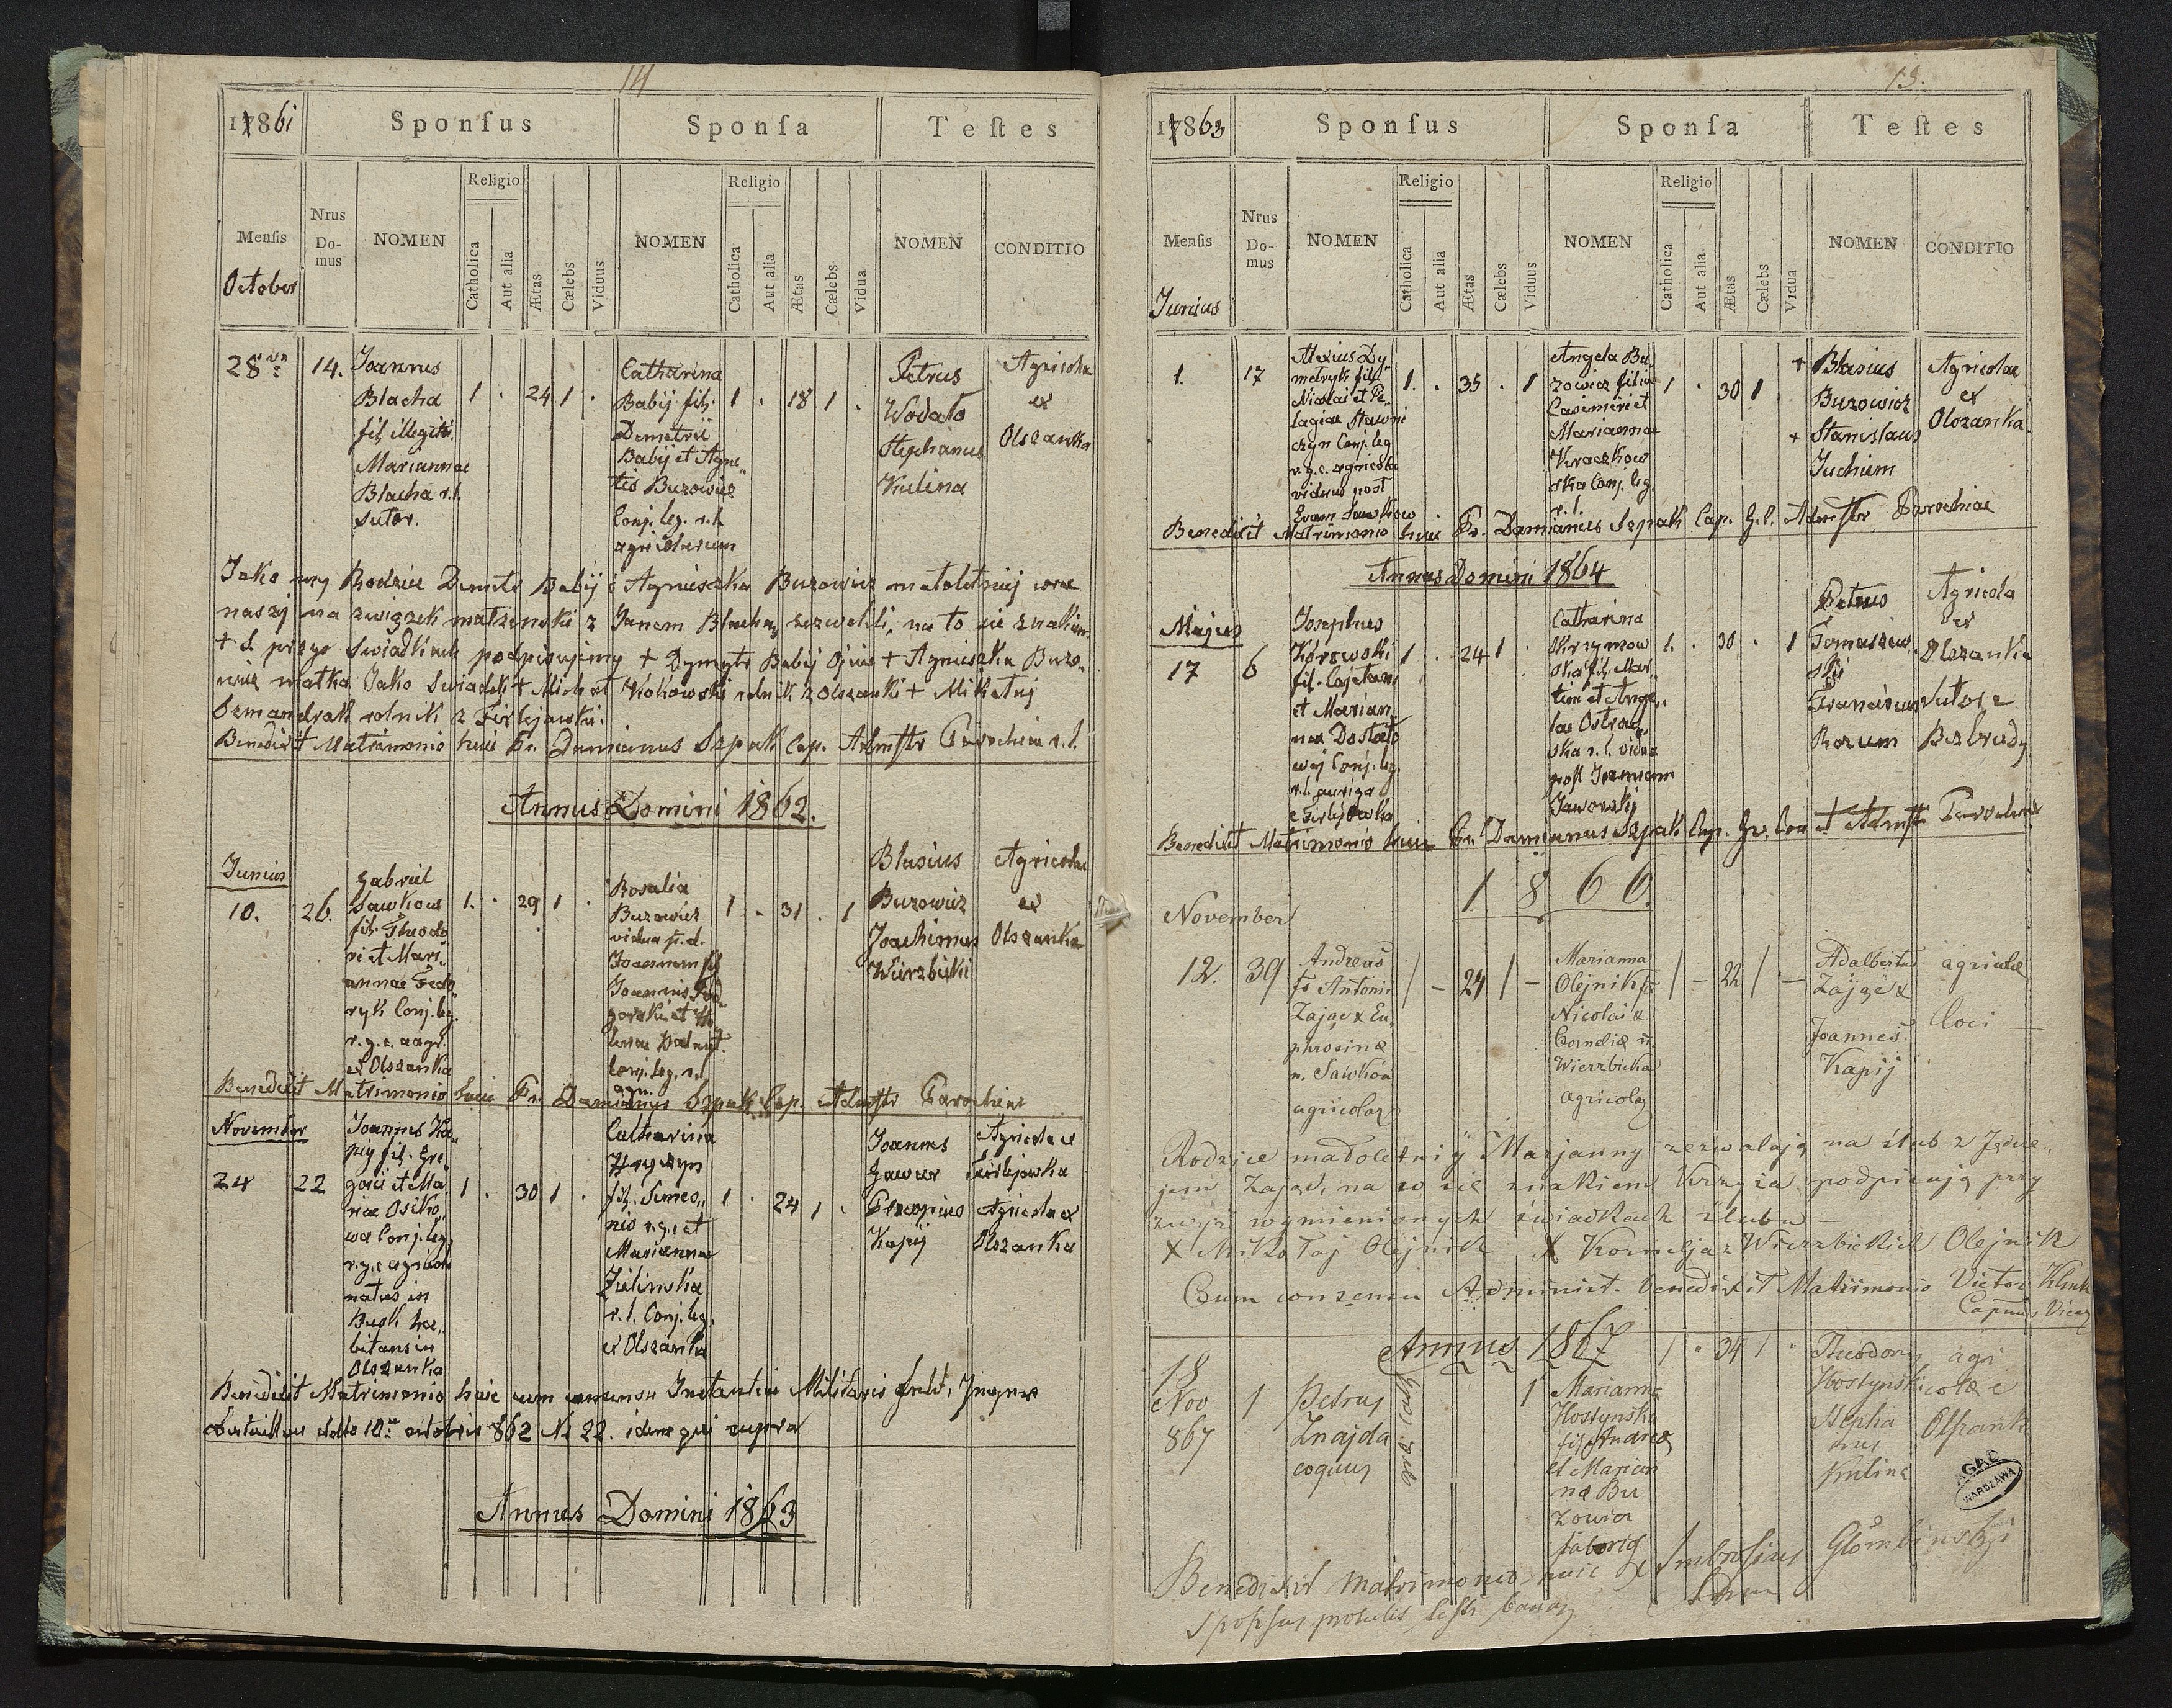 14
1861
Sponſus
Sponſa
Teſtes
Menſis
October
Nrus Do-mus
NOMEN
Religio
Catholica
Aut alia
Ætas
Cælebs
Viduus
NOMEN
Religio
Catholica
Aut alia
Ætas
Cælebs
Vidua
NOMEN
CONDITIO
28
14.
Joannes
Blacha
fil. illegit.
Mariannae
Blacha r.l.
Sutor.
1 . 24 1 .
Catharina
Babij fil.
Demetrii
Babij et Agne„
tis Buzowicz
Conj. leg. r.l.
agricolarum
1 . 18 1 .
Petrus
Wodało
Stephanus
Kulina
Agricolae
ex
Olszanka
Jako my Rodzice Demetr Babij i Agnieszka Buzowicz małoletniej córce
naszej na związek małżeński z Janem Blachą zezwolili, na to się znakiem
+ i przy świadkach podpisujemy + Dymytr Babij Ojciec + Agnieszka Buzo„
wicz matka Jako świadek + Michał Kokowski rolnik z Olszanki + Mikołaj
Semandrak rolnik z Firlejówki.
Benedixit Matrimonio huic Fr. Damianus Szpak Cap. Admstr Parochiae r.l.
Annus Domini 1862.
Junius
10.
26.
Gabriel
Sawkow
fil. Theodo
ri et Mari„
annae Fedo
ryk Conj. leg.
r.g.c. agr.
ex Olszanka
1. . 29 1 .
Rosalia
Buzowicz
vidua p.d.
Joannem fil
Joannis Pod„
gorski et He
lenae
Conj. leg. r.l.
agr.
1 . 31 . 1
Blasius
Buzowicz
Joachimus
Wierzbicki
Agricolae
ex
Olszanka
Benedixit Matrimonio huic Fr. Damianus Szpak Cap. Admstr Parochiae
November
24
22
Joannes Ka„
pij fil. Gre„
gorii et Ma
riae Osiko„
wa Conj. leg.
r.g.c. agricola
natus in
Busk ha„
bitans in
Olszanka
1 . 30 1 .
Catharina
Hrycyn
fil. Simeo„
nis r.g. et
Marianna
Zielinska
r.l. Conj. leg.
ex Olszanka
1 . 24 1 .
Joannes
Gawur
Procopius
Kapij
Agricola ex
Firlejowka
Agricola ex
Olszanka
Benedixit Matrimonio huic cum consensu Instantiae Militaris
ddto 10 octobris 862 N 22. idem qui supra
Annus Domini 1863
15.
1863
Sponſus
Sponſa
Teſtes
Menſis
Junius
Nrus Do-mus
NOMEN
Religio
Catholica
Aut alia
Ætas
Cælebs
Viduus
NOMEN
Religio
Catholica
Aut alia
Ætas
Cælebs
Vidua
NOMEN
CONDITIO
1.
17
Alexius Dy
metryk fil.
Nicolai et Pe„
lagiae Stawni
czyn Conj. leg
r.g.c. agricola
viduus post
Evam Sawkow
1. . 35 . 1
Angela Bu„
zowicz filia
Casimiri et
Mariannae
Kwaczkow
ska Conj. leg.
r.l.
1 . 30 1
+ Blasius
Buzowicz
+ Stanislaus
Juchim
Agricolae
ex
Olszanka
Benedixit Matrimonio huic Fr. Damianus Szpak Cap. G.C. Admstr Parochiae
Annus Domini 1864
Majus
17
6
Josephus
Korowski
fil. Cajetani
et Marian„
nae Dostato
waj Conj. leg.
r.l. auriga
e Firlejowka
1 . 24 1 .
Catharina
Skrzymow
ska fil. Mar„
tini et Ange„
lae Ostrow„
ska r.l. vidua
post Jeremiam
Jaworskij
1. . 30 . 1
Petrus
Tomaszew„
ski
Franciscus
Rozum
Agricola
ex
Olszanka
Sutor z
Bezbrudy
Benedixit Matrimonio huic Fr. Damianus Szpak Cap. et Admstr Parochiae
1866.
November
12.
39
Andreas
fs Antonii
Zając & Eu„
phrosinæ
n. Sawków
agricolaz
1 – 24 1 –
Marianna
Olejnik fa
Nicolai &
Corneliæ n.
Wierzbicka
agricolaz
1 – 22 1 –
Adalbertus
Zając &
Joannes
Kapij
agricolæ
loci —
Rodzice małoletniéj Marjanny zezwalają na ślub z Jędrze„
jem Zając, na co się znakiem krzyża podpisują przy
zwyż wymienionych świadkach ślubu —
X Mikołaj Olejnik X Kornelja z Wierzbickich Olejnik
Cum consensu Administ. benedixit Matrimonio Victor Kluk
Annus 1867
18
Nov
867
1
Petrus
Znajda
coquus
1
Marianna
Hostynska
fil. Andreæ
et Marian
næ Bu
zowicz
fabriq
1 . 34 1 .
Theodorus
Hostynski
Stepha
nus
Kulina
agri
colæ e
Olszank
Benedixit matrimonio huic X Ambrosius Głombinskji
Sponsus protulit testi
AGAD
WARSZAWA